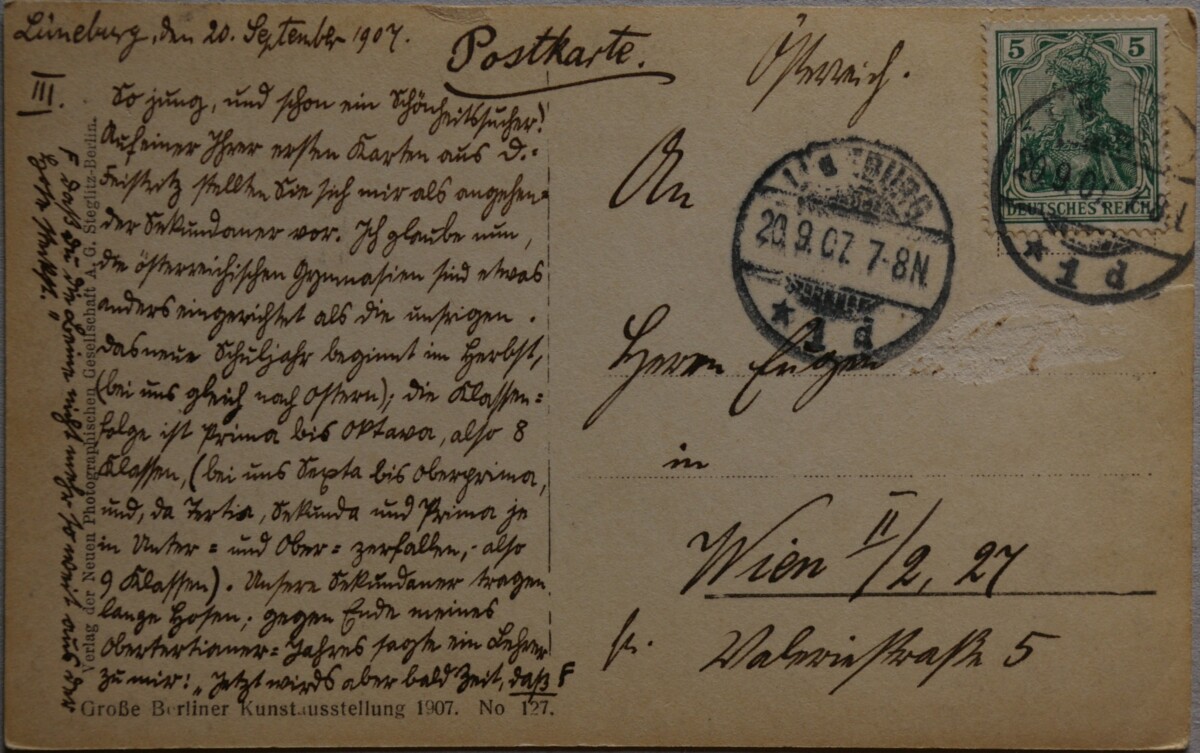 Lüneburg, den 20. September 1907.
III.
So jung, und schon ein Schönheitssucher!
Auf einer Ihrer ersten Karten aus D.-
Feistritz stellten Sie sich mir als angehen-
der Sekundaner vor. Ich glaube nun,
die österreichischen Gymnasien sind etwas
anders eingerichtet als die unsrigen.
Das neue Schuljahr beginnt im Herbst,
(bei uns gleich nach Ostern); die Klassen=
folge ist Prima bis Oktava, also 8
Klassen, (bei uns Sexta bis Oberprima,
und, da Tertia, Sekunda und Prima je
in Unter= und Ober= zerfallen, also
9 Klassen). Unsere Sekundaner tragen
lange Hosen; gegen Ende meines
Obertertianer=Jahres sagte ein Lehrer
zu mir: „Jetzt wirds aber bald Zeit, daß F
F daß du die Beine nicht mehr so weit aus der
Hose steckst."
Verlag der Neuen Photographischen Gesellschaft A. G. Steglitz-Berlin.
Große Berliner Kunstausstellung 1907. No 127.
Postkarte.
Österreich.
5 5
DEUTSCHES REICH
20.9.07
* 1 d
LÜNEBURG
20.9.07. 7-8N.
* 1 d
An
Herrn Eugen
in
Wien II/2, 27
Valeriestraße 5